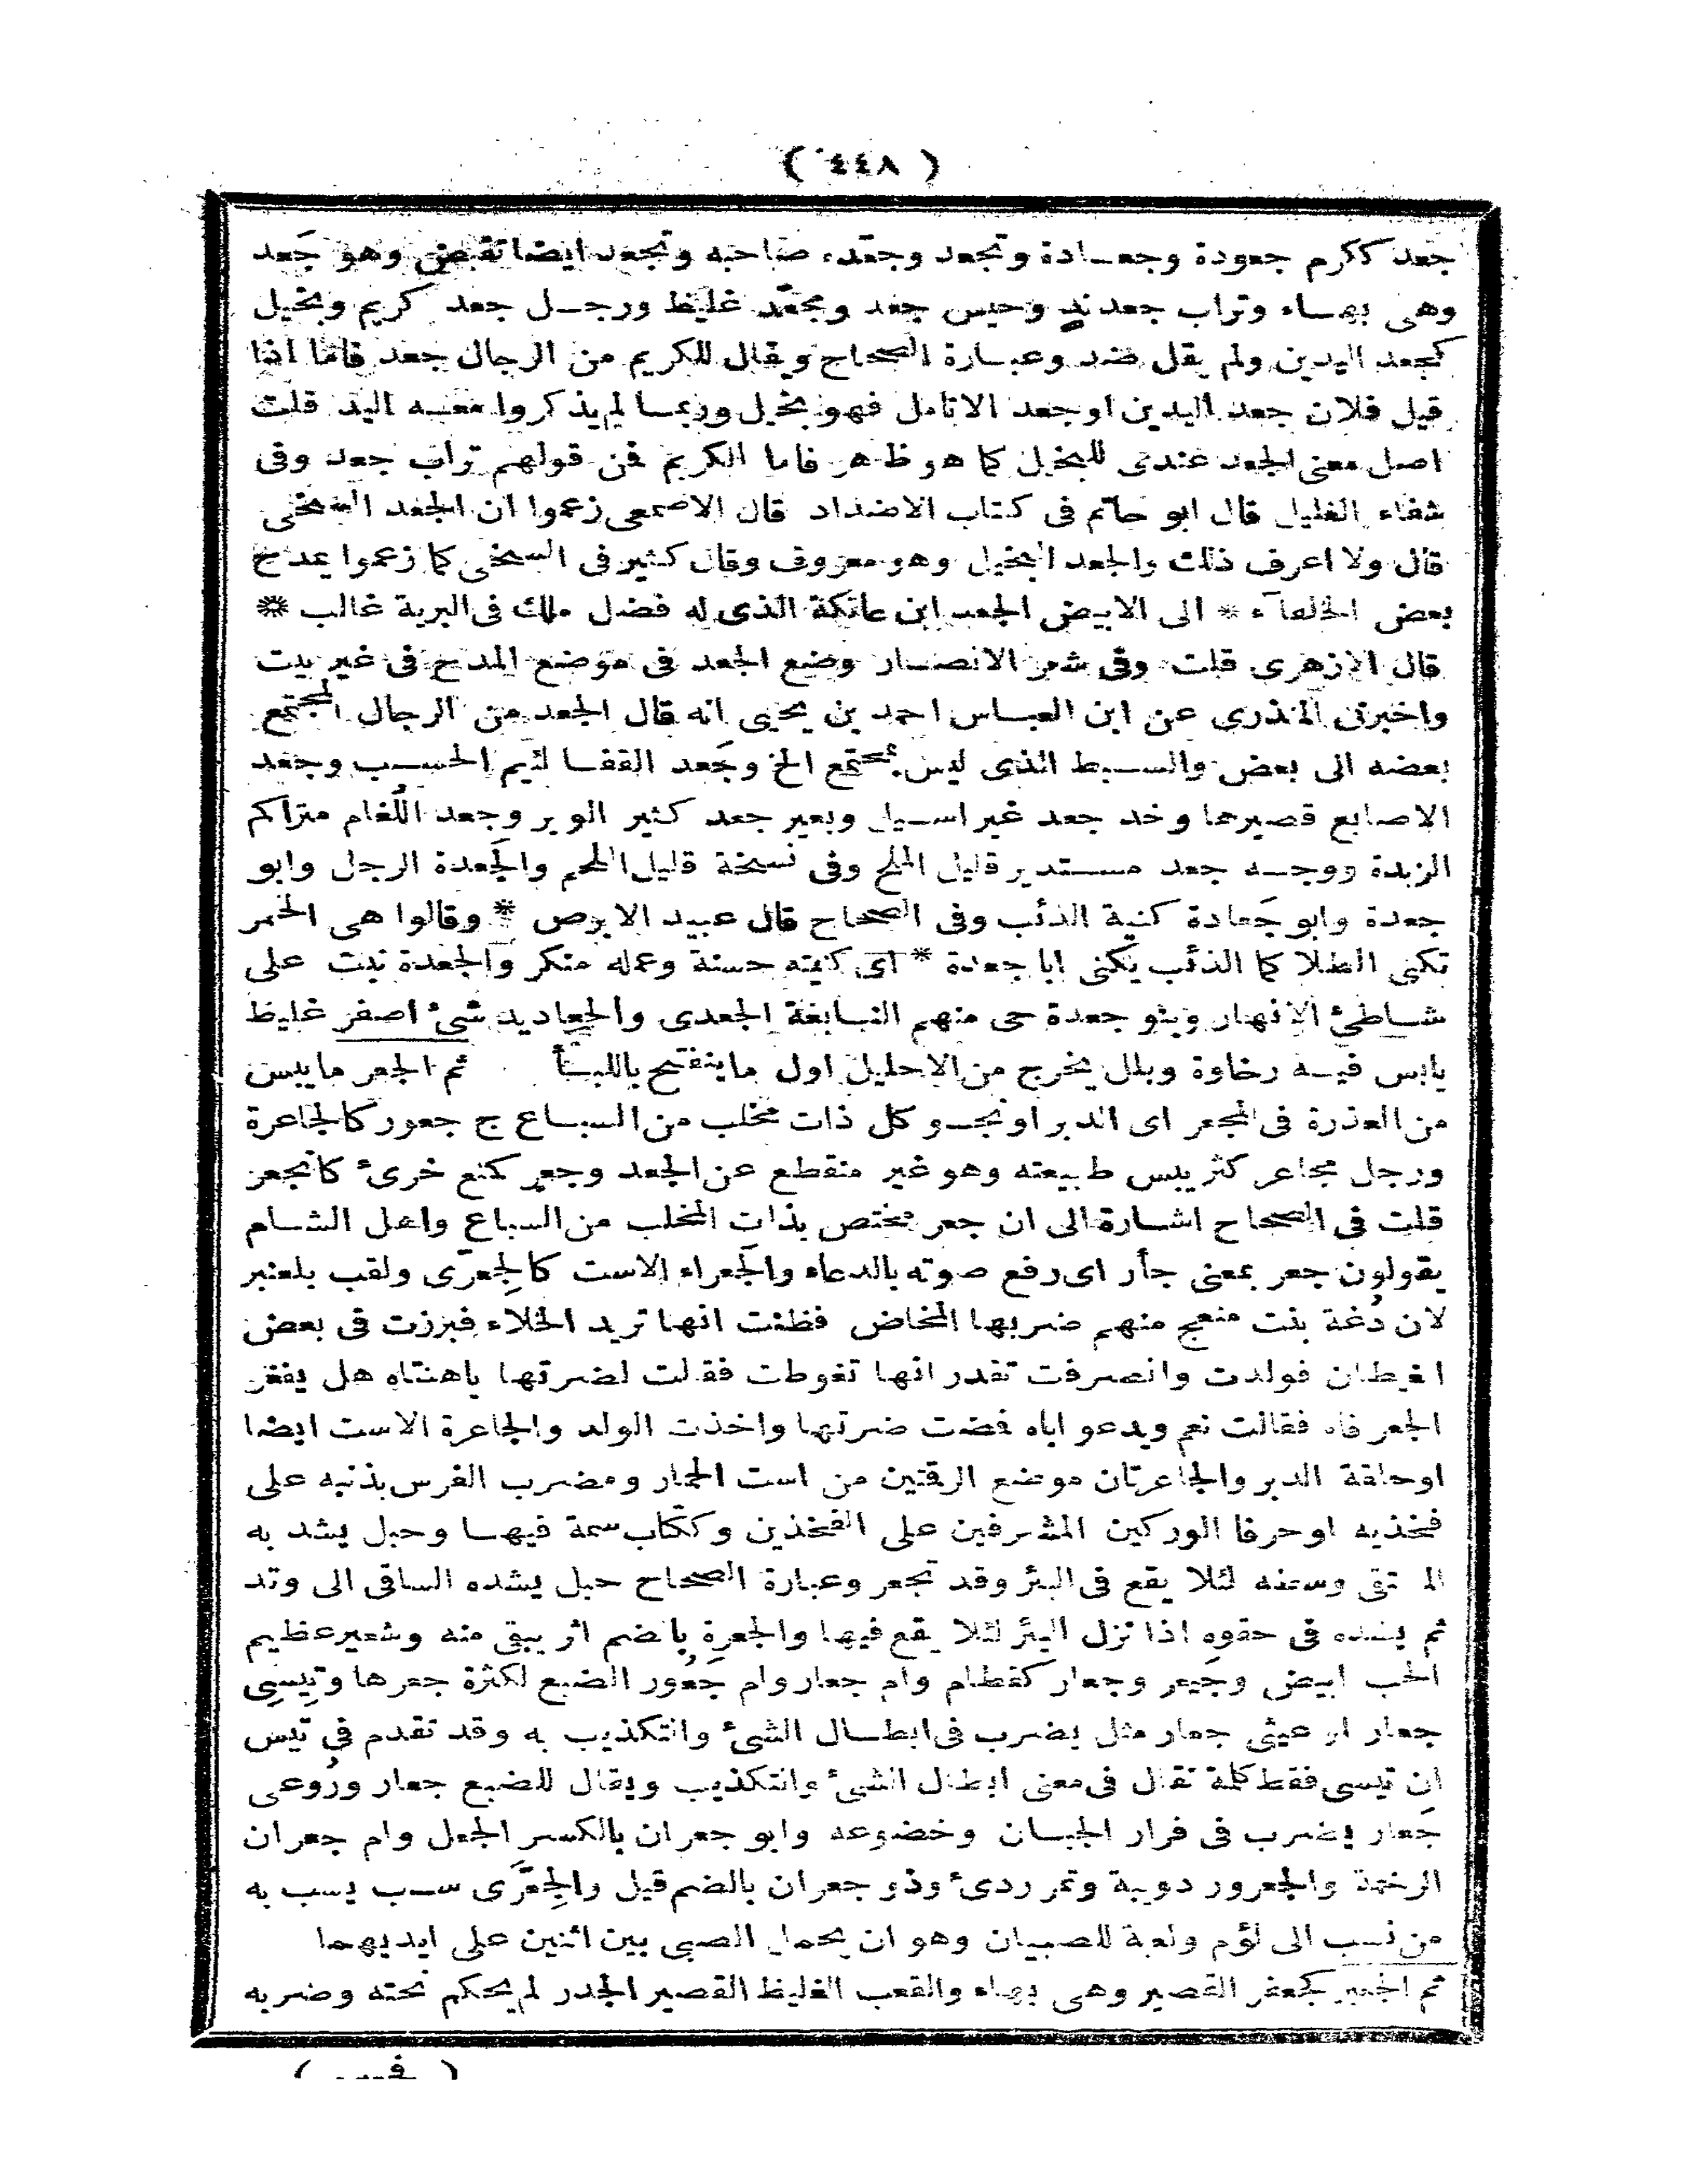 ( ٤٤٨ )
جعد ككرم جعودة وجعـادة وتجعد وجعّده صاحبه وتجعد ايضا تقبض وهو جَعد
وهى بهـاء وتراب جعد ند وحيس جعد ومجعّد غليظ ورجـل جعد كريم وبخيل
كجعد اليدين ولم يقل ضد وعبـارة الصحاح ويقال للكريم من الرجال جعد فاما اذا
قيل فلان جعد اليدين او جعد الانامل فهو بخيل وربمـا لم يذكروا معـه اليد قلت
اصل معنى الجعد عندى للبخيل كا هو ظاهر فاما الكريم فن قولهم تراب جعد وفى
شفاء الغليل قال ابو حاتم فى كتاب الاضداد قال الاصمعى زعموا ان الجعد السخى
قال ولا اعرف ذلك والجعد البخيل وهو معروف وقال كثير فى السخى كا زعموا يمدح
بعض الخلفآء * الى الابيض الجعد ابن عاتكة الذى له فضل ملك فى البرية غالب *
قال الازهرى قلت وفى شعر الانصـار وضع الجعد فى موضع المدح فى غير بيت
واخبرنى المنذرى عن ابن العبـاس احمد بن يحيى انه قال الجعد من الرجال المجتمع
بعضه الى بعض والسـبط الذى ليس بمجتمع الخ وجَعد القفـا لئيم الحسـب وجعد
الاصابع قصيرها وخد جعد غير اسـيل وبعير جعد كثير الوبر وجعد اللُغام متراكم
الزبدة ووجـه جعد مسـتدير قليل الملح وفى نسخة قليل اللحم والجَعدة الرجل وابو
جعدة وابو جَعادة كنية الذئب وفى الصحاح قال عبيد الابرص * وقالوا هى الخمر
تكنى الطلا كا الذئب يكنى ابا جعدة * اى كنيته حسنة وعمله منكر والجعدة نبت على
شـاطئ الانهار وبنو جعدة حى منهم النـابغة الجعدى والجعاديد شئ اصفر غليظ
يابس فيـه رخاوة وبلل يخرج من الاحليل اول ما ينفتح باللبـأ ثم الجعر ما يبس
من العذرة فى المجعر اى الدبر او نجـو كل ذات مخلب من السبـاع ج جعور كالجاعرة
ورجل مجاعر كثر يبس طبيعته وهو غير منقطع عن الجعد وجعر كمنع خرئ كانجعر
قلت فى الصحاح اشـارة الى ان جعر مختص بذات المخلب من السباع واهل الشـام
يقولون جعر بمعنى جأر اى رفع صوته بالدعاء والجَعراء الاست كالجِعرّى ولقب بلعنبر
لان دُغة بنت منعج منهم ضربها المخاض فظنت انها تريد الخلاء فبرزت فى بعض
الغيطان فولدت وانصرفت تقدر انها تغوطت فقالت لضرتها ياهنتاه هل يفغر
الجعر فاه فقالت نعم ويدعو اباه فضت ضرتها واخذت الولد والجاعرة الاست ايضا
او حلقة الدبر والجاعرتان موضع الرقتين من است الحمار ومضرب الفرس بذنبه على
فخذيه او حرفا الوركين المشرفين على الفخذين وككتاب سمة فيهـا وحبل يشد به
المستقى وسطه لئلا يقع فى البئر وقد تجعر وعبارة الصحاح حبل يشده الساقى الى وتد
ثم يشده فى حقوه اذا نزل البئر لئلا يقع فيها والجعرة بالضم اثر يبقى منه وشعير عظيم
الحب ابيض وجَيعر وجعار كقطام وام جعار وام جَعْور الضبع لكثرة جعرها وتِيسِى
جعار او عيثى جعار مثل يضرب فى ابطـال الشئ والتكذيب به وقد تقدم فى تيس
ان تيسى فقط كلمة تقال فى معنى ابطال الشئ والتكذيب ويقال للضبع جعار ورُوعى
جَعار يضرب فى فرار الجبـان وخضوعه وابو جعران بالكسر الجعل وام جعران
الرخمة والجعرور دويبة وتمر ردئ وذو جعران بالضم قيل والجِعرَّى سـب يسب به
من نسب الى لؤم ولعبة للصبيان وهو ان يحمل الصبى بين اثنين على ايديهما
ثم الجعبر كجعفر القصير وهى بهاء والقعب الغليظ القصير الجدر لم يحكم نحته وضربه